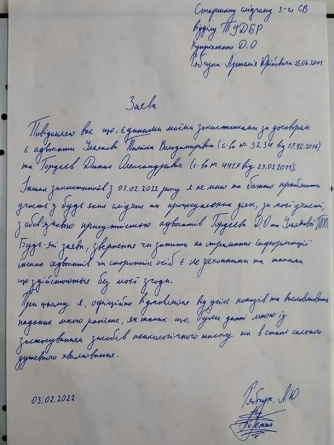 Старшому слідчому 3-го СВ
Відділу ТУДБР
Купрієнко Д.О
Юрійовича 25.06.2001
Заява
Повідомляю вас що, єдиними моїми захисниками за договором
є адвокати Тетяна Володимирівна (с-во № 3234 від 17.02.2016)
та Гордєєв Олександрович (с-во № 4419 від 29.03.2019).
Інших захисників з 03.02.2022 року я не маю та бажаю приймати
участь з будь яких слідчих та процесуальних діях, за моєї участі,
з обов'язковою присутністю адвокатів Гордєєва Д.О та
Будь-які заяви, звернення чи запити на отримання інформації
інших адвокатів чи сторонніх осіб є не законними та такими
що здійснюються без моєї згоди.
При цьому я, офіційно відмовляюся від усіх показів та
наданих мною раніше, як таких що, були дані мною із
застосуванням засобів психологічного тиску та в стані сильного
душевного хвилювання.
03.02.2022